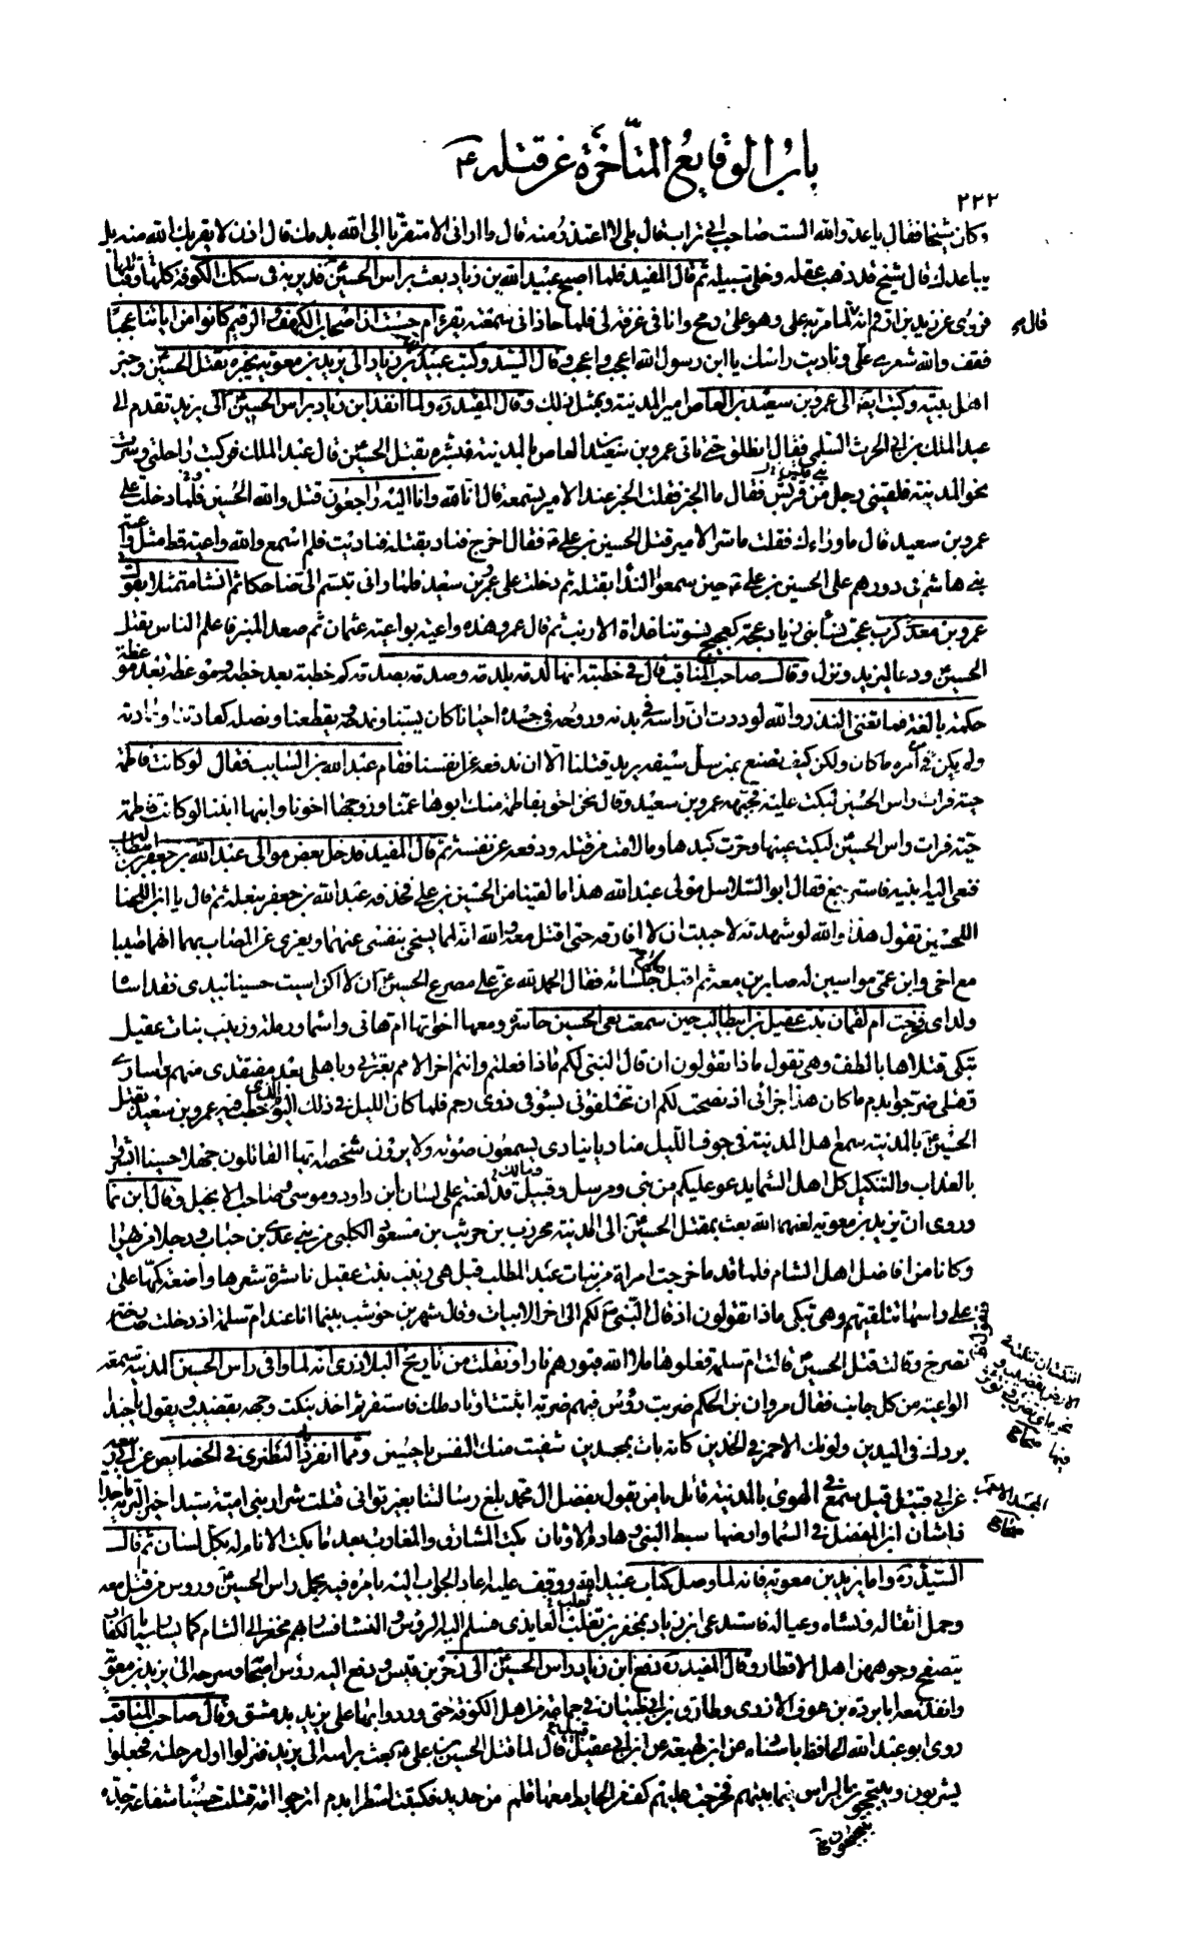 باب الوقايع المتأخرة عن قتله ع
٢٢٢
وكان شيخا فقال يا عدو الله الست صاحب ابي تراب قال بلى لا اعتذر منه قال ما اراني الا متقربا الى الله بدمك قال اذن لا يقربك الله منه بل
يباعدك قال شيخ قد ذهب عقله وخلى سبيله ثم قال المفيد فلما اصبح عبيد الله بن زياد بعث براس الحسين ع فدير به في سكك الكوفة كلها وقبائلها
فروى عن زيد بن ارقم انه لما مر به علي وهو على رمح وانا في غرفة لي فلما حاذاني سمعته يقرء ام حسبت ان اصحاب الكهف والرقيم كانوا من اياتنا عجبا
قال
فقف والله شعري علي وناديت راسك يا ابن رسول الله اعجب واعجب وقال السيد وكتب عبيد الله بن زياد الى يزيد بن معوية يخبره بقتل الحسين وخبر
اهل بيته وكتب ايضا الى عمرو بن سعيد بن العاص امير المدينة بمثل ذلك وقال المفيد ره ولما انفذ ابن زياد براس الحسين ع الى يزيد تقدم الى
عبد الملك بن ابي الحرث السلمي فقال انطلق حتى تاتي عمرو بن سعيد بن العاص بالمدينة فبشره بقتل الحسين قال عبد الملك فركبت راحلتي وسرت
نحو المدينة فلقيني رجل من قريش فقال ما الخبر فقلت الخبر عند الامير تسمعه قال انا لله وانا اليه راجعون قتل والله الحسين فلما دخلت على
عمرو بن سعيد قال ما وراءك فقلت ما سر الامير قتل الحسين بن علي فقال اخرج فناد بقتله فناديت فلم اسمع والله واعية قط مثل واعية
بني هاشم في دورهم على الحسين بن علي حين سمعوا النداء بقتله ثم دخلت على عمرو بن سعيد فلما راني تبسم الي ضاحكا ثم انشا متمثلا بقول
عمرو بن معدي كرب عجت نساء بني زياد عجة كعجيج نسوتنا غداة الارنب ثم قال عمرو هذه واعية بواعية عثمان ثم صعد المنبر فاعلم الناس بقتل
الحسين ع ودعا ليزيد ونزل وقال صاحب المناقب قال في خطبته انها لدمة بلدمة وصدمة بصدمة كم خطبة بعد خطبة وموعظة بعد موعظة
حكمة بالغة فما تغني النذر والله لوددت ان راسه في بدنه وروحه في جسده احيانا كان يسبنا ونمدحه ويقطعنا ونصله كعادتنا وعادته
ولم يكن من امره ما كان ولكن كيف نصنع بمن سل سيفه يريد قتلنا الا ان ندفعه عن انفسنا فقام عبد الله بن السايب فقال لو كانت فاطمة
حية فرات راس الحسين لبكت عليه فجبهه عمرو بن سعيد وقال نحن احق بفاطمة منك ابوها عمنا وزوجها اخونا وابنها ابننا لو كانت فاطمة
حية فرات راس الحسين ع لبكت عينها وحرت كبدها وما لامت من قتله ودفعه عن نفسه ثم قال المفيد فدخل بعض موالي عبد الله بن جعفر بن ابيطالب
فنعى اليه ابنيه فاسترجع فقال ابو السلاسل مولى عبد الله هذا ما لقينا من الحسين بن علي فحذفه عبد الله بن جعفر بنعله ثم قال يا ابن اللخنا
اللحسين تقول هذا والله لو شهدته لاحببت ان لا افارقه حتى اقتل معه والله انه لما يسخى بنفسي عنهما ويعزي عن المصاب بهما انهما اصيبا
مع اخي وابن عمي مواسيين له صابرين معه ثم اقبل على جلسائه فقال الحمد لله عز علي مصرع الحسين ع ان لا اكن اسيت حسينا بيدي فقد اساه
ولداي فخرجت ام لقمان بنت عقيل بن ابيطالب حين سمعت نعي الحسين حاسرة ومعها اخواتها ام هاني واسما ورملة وزينب بنات عقيل
تبكي قتلاها بالطف وهي تقول ماذا تقولون ان قال النبي لكم ماذا فعلتم وانتم اخر الامم بعترتي وباهلي بعد مفتقدي منهم اسارى
وقتلى ضرجوا بدم ما كان هذا جزائي اذ نصحت لكم ان تخلفوني بسوء في ذوي رحم فلما كان الليل في ذلك اليوم الذي خطب فيه عمرو بن سعيد بقتل
الحسين ع بالمدينة سمع اهل المدينة في جوف الليل مناديا ينادي يسمعون صوته ولا يرون شخصه ايها القاتلون جهلا حسينا ابشروا
بالعذاب والتنكيل كل اهل السماء يدعو عليكم من نبي ومرسل وقبيل قد لعنتم على لسان ابن داود وموسى وصاحب الانجيل وقال ابن نما
وروى ان يزيد بن معوية لعنهما الله بعث بمقتل الحسين ع الى المدينة محرز بن حريث بن مسعود الكلبي من بني عدي بن حباب ورجلا من بهرا
وكانا من افاضل اهل الشام فلما قدما خرجت امراة من بنات عبد المطلب قيل هي زينب بنت عقيل ناشرة شعرها واضعة كمها على
على راسها تتلقيهم وهي تبكي ماذا تقولون اذ قال النبي لكم الى اخر الابيات وقال شهر بن حوشب بينما انا عند ام سلمة اذ دخلت صارخة
تصرخ وقالت قتل الحسين ع قالت ام سلمة فعلوها ملا الله قبورهم نارا ونقلت من تاريخ البلاذري انه لما وافى راس الحسين المدينة سمعت
الواعية من كل جانب فقال مروان بن الحكم ضربت دوسر فيهم ضربة اثبتت اوتاد ملك فاستقر ثم اخذ ينكت وجهه بقضيب ويقول يا حبذا
بردك في اليدين ولونك الاحمر في الخدين كانه بات بمجسدين شفيت منك النفس يا حسين ومما انفرد به النطنزي في الخصايص عن ابي ربيعة
عن ابي قبيل قيل سمع في الهوى بالمدينة قائل يا من يقول بفضل ال محمد بلغ رسالتنا بغير تواني قتلت شرار بني امية سيدا خير البرية ماجدا
ذا شان ابن المفضل في السماء وارضها سبط النبي وهادم الاوثان بكت المشارق والمغارب بعد ما بكت الانام له بكل لسان ثم قال
السيد ره واما يزيد بن معوية فانه لما وصل كتاب عبيد الله ووقف عليه اعاد الجواب اليه يامره فيه بحمل راس الحسين ع ورؤس من قتل معه
وحمل اثقاله ونسائه وعياله فاستدعى ابن زياد بمحفر بن ثعلبة العايذي فسلم اليه الرؤس والنساء فسار بهم محفر الى الشام كما يسار بسبايا الكفار
يتصفح وجوههن اهل الاقطار وقال المفيد ره دفع ابن زياد راس الحسين ع الى زحر بن قيس ودفع اليه رؤس اصحابه وسرحه الى يزيد بن معوية
وانفذ معه ابا بردة بن عوف الازدي وطارق بن ابي ظبيان في جماعة من اهل الكوفة حتى وردوا بها على يزيد بدمشق وقال صاحب المناقب
روى ابو عبد الله الحافظ باسناده عن ابن لهيعة عن ابي قبيل قال لما قتل الحسين بن علي بعث براسه الى يزيد فنزلوا اول مرحلة فجعلوا
يشربون ويبتهجون بالراس فيما بينهم فخرجت عليهم كف من الحايط معها قلم من حديد فكتبت اسطرا بدم اترجوا امة قتلت حسينا شفاعة جده